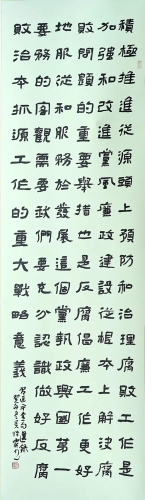 積極推進從源頭上預防和治理腐敗工作是
加強和改進黨風廉政建設從根本上解決腐
敗問題的重要舉措也是反腐倡廉工作更好
地服從和服務於發展這個黨執政興國第一
要務的客觀需要我們要充分認識做好反腐
敗治本抓源工作的重大戰略意義